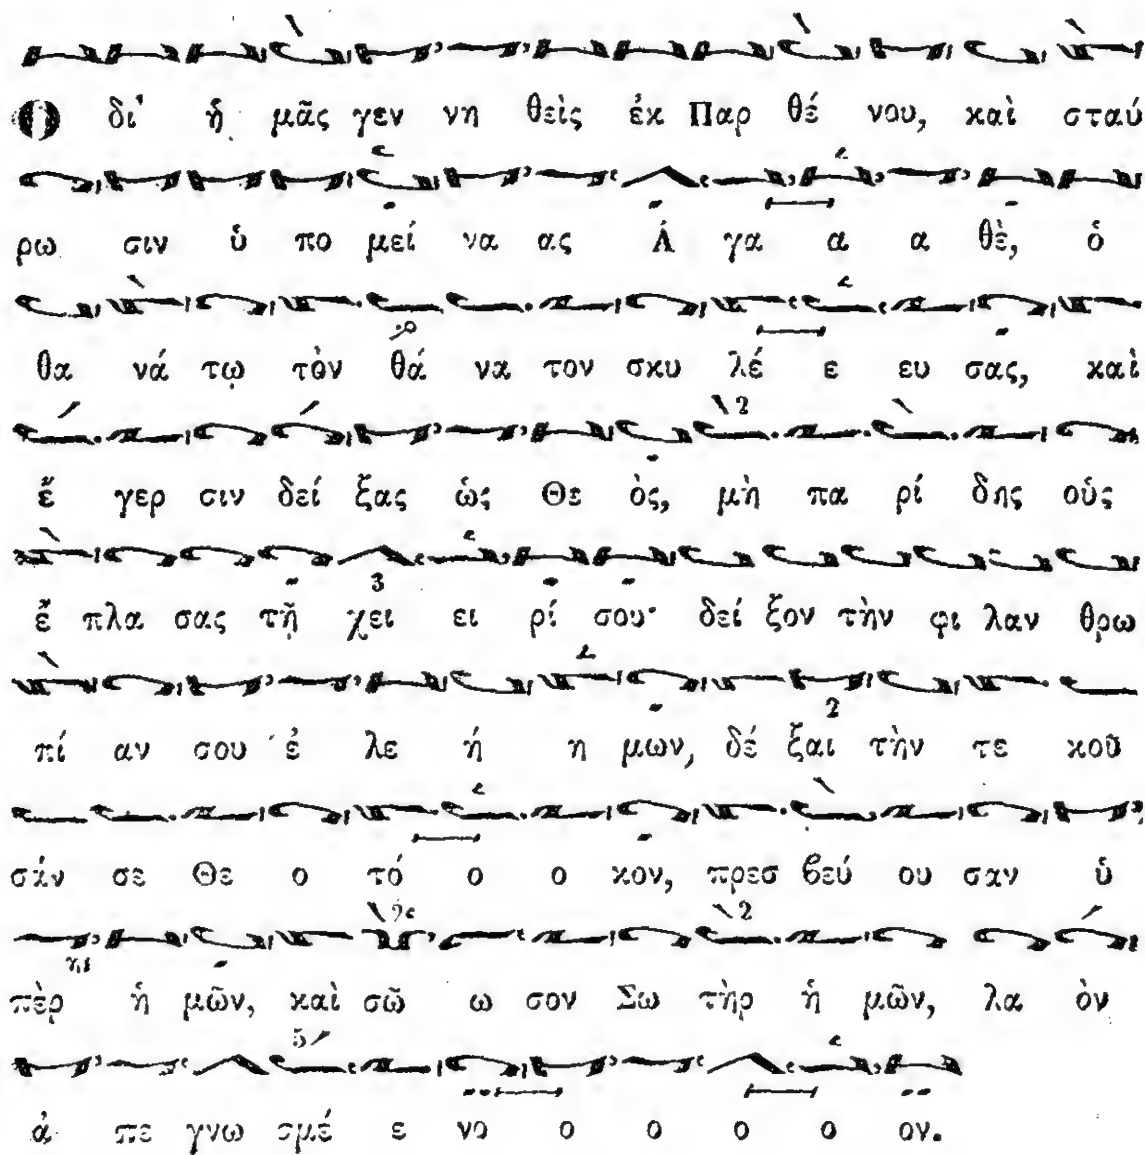 Ὁ δι' ἡ μᾶς γεν νη θεὶς ἐκ Παρ θέ νου, καὶ σταύ
ρω σιν ὑ πο μεί να ας Ἀ γα α α θὲ, ὁ
θα νά τῳ τὸν θά να τον σκυ λέ ε ευ σας, καὶ
ἔ γερ σιν δεί ξας ὡς Θε ὸς, μὴ πα ρί δης οὓς
ἔ πλα σας τῇ χει ει ρί σου· δεί ξον τὴν φι λαν θρω
πί αν σου ἐ λε ή η μων, δέ ξαι τὴν τε κοῦ
σάν σε Θε ο τό ο ο κον, πρεσ βεύ ου σαν ὑ
πὲρ ἡ μῶν, καὶ σῶ ω σον Σω τὴρ ἡ μῶν, λα ὸν
ἀ πε γνω σμέ ε νο ο ο ο ο ον.